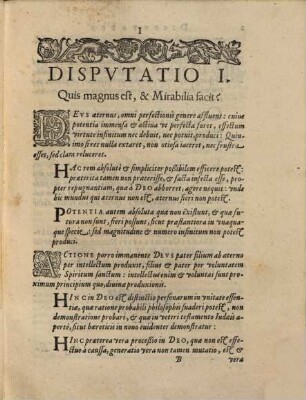 1
DISPVTATIO I.
Quis magnus est, & Mirabilia facit?
DEVS æternus, omni perfectionū genere affluens: cuius
potentia immensa & actiua vt perfecta foret, effectum
virtute infinitum nec debuit, nec potuit produci: Quin-
imo si res nulla extaret, non otiosa iaceret, nec frustra
esset, sed clara reluceret.
HAC rem absolutè & simpliciter possibilem efficere potest:
præterita tamen non præteriisse, & facta infecta esse, pro-
pter repugnantiam, quà à DEO abhorret, agere nequit: vnde
hic mundus qui æternus non est, æternus fieri non potest
POTENTIA autem absoluta quæ non existunt, & quæ fu-
tura non sunt, fieri possunt, sicut præstantiora in vnaqua-
que specie: sed magnitudine & numero infinitum non potest
produci.
ACTIONE porro immanente DEVS pater filium ab æterno
per intellectum produxit, filius & pater per voluntatem
Spiritum sanctum: intellectus enim & voluntas sunt pro-
ximum principium quo, diuinæ productionis.
HINC in DEO est distinctio personarum in vnitate essen-
tiæ, quæ ratione probabili philosophis suaderi potest, non
demonstratione probari, & quæ in veteri testamento Iudæis a-
pertè, sicut hæreticis in nouo euidenter demonstratur:
HINC præterea vera processio in DEO, quæ non est effe-
ctus à caussa, generatio vera non tamen mutatio, est &
B vera